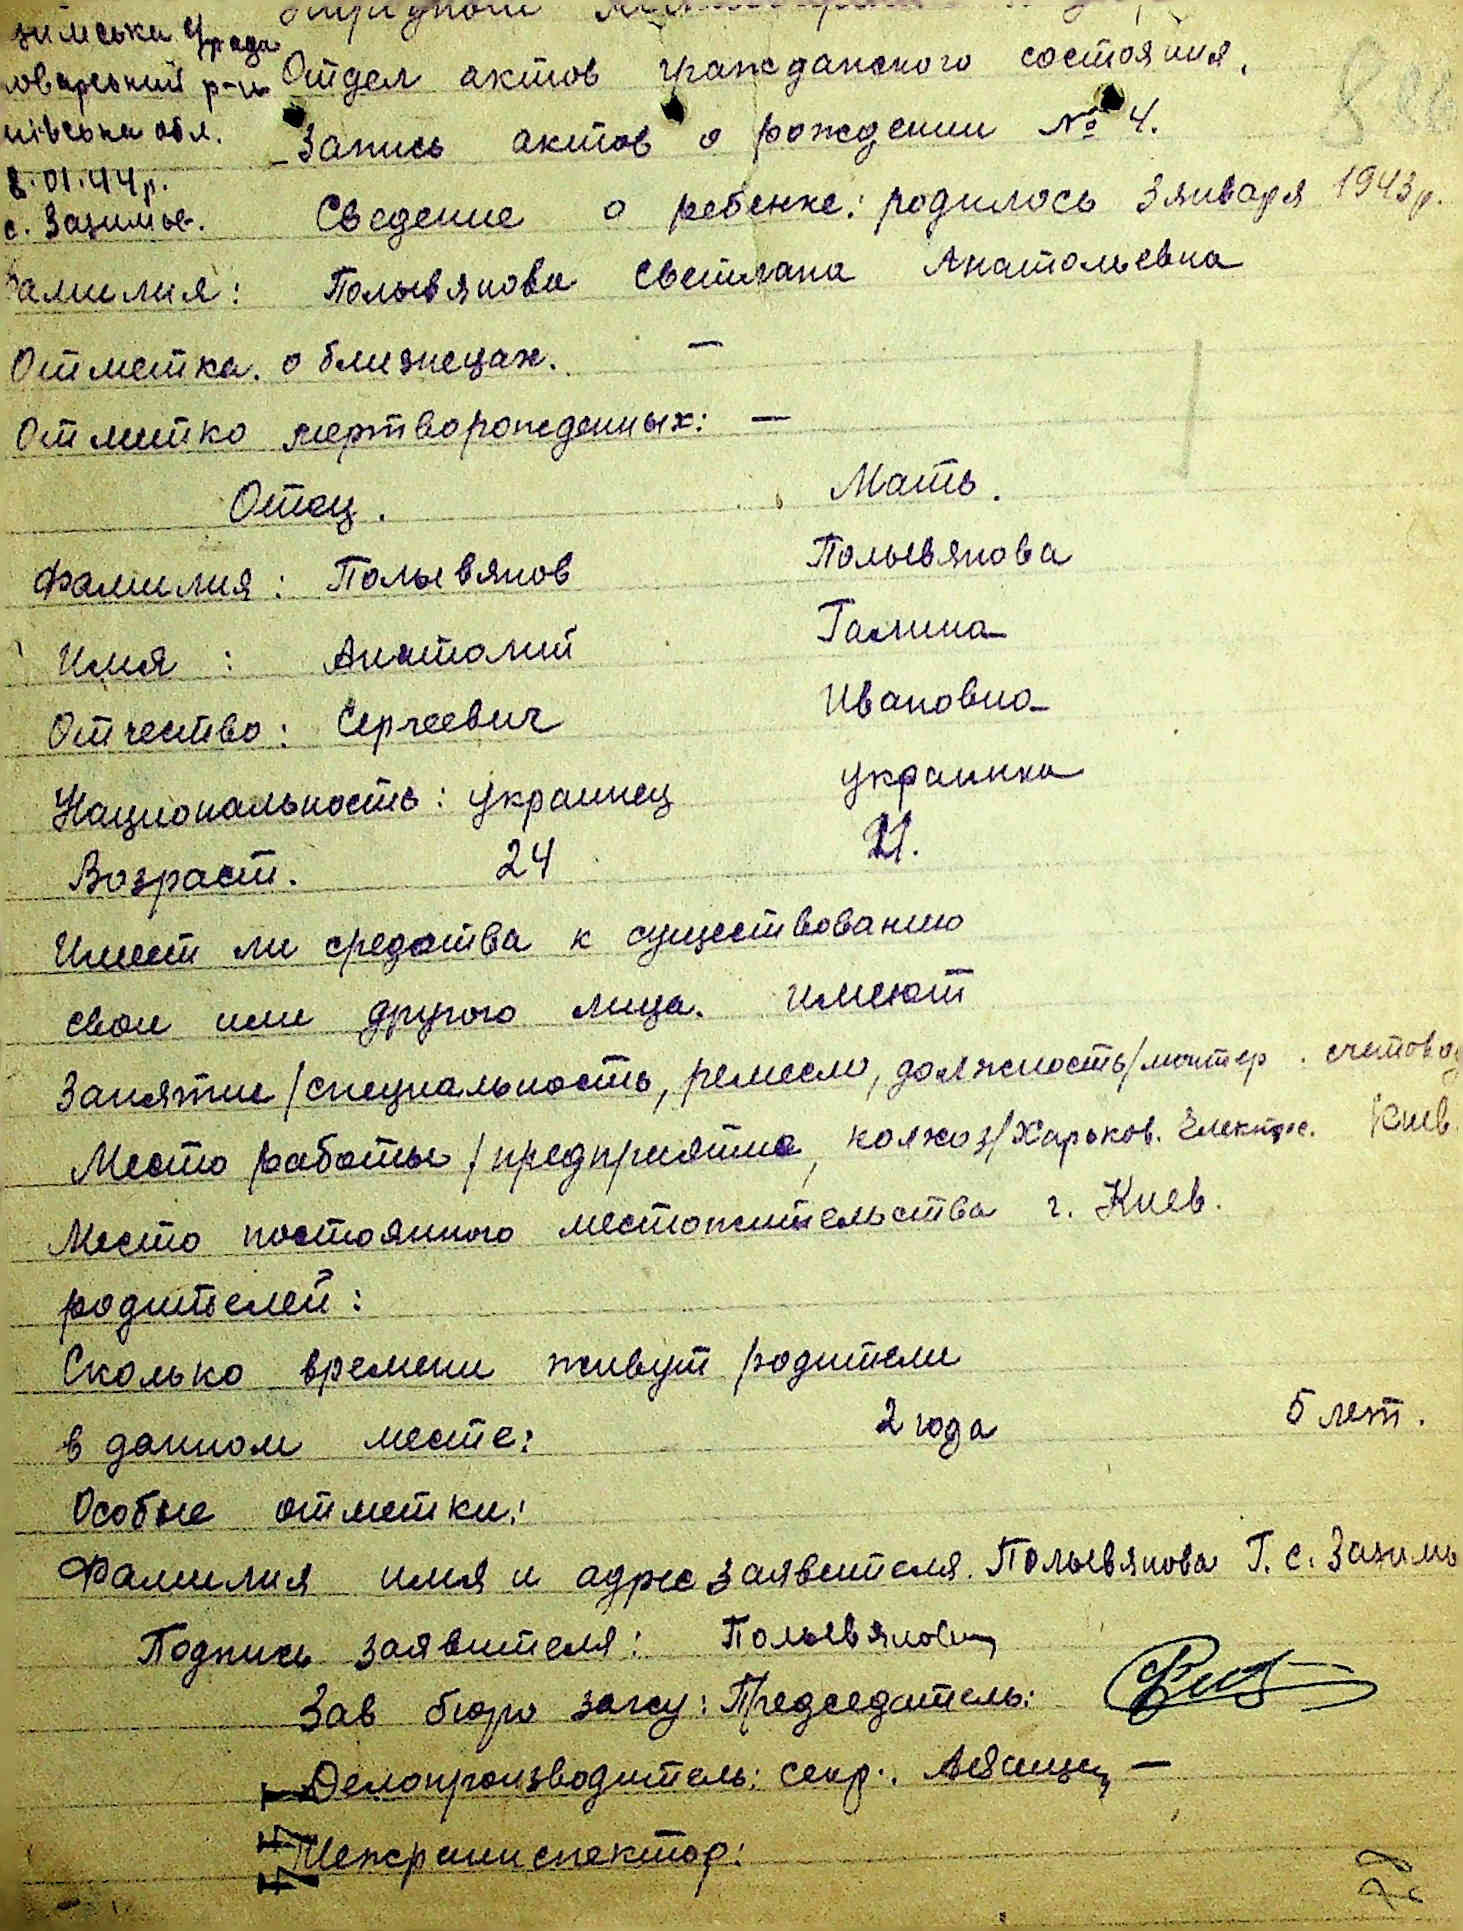 Урада
р-н
обл.
8.01.44 р.
с. Зазимье.
Отдел актов гражданского состояния.
Запись актов о рождении № 4.
Сведение о ребенке: родилось 3 января 1943 р.
Фамилия: Полывянова Светлана Анатольевна
Отметка о близнецах. —
Отметка мертворожденных: —
Отец. Мать.
Фамилия: Полывянов Полывянова
Имя : Анатолий Галина
Отчество: Сергеевич Ивановна
Национальность: украинец украинка
Возраст. 24 21.
Имеет ли средства к существованию
свои или другого лица. имеют
Занятие /специальность, ремесло, должность/ монтер . счетовод
Место работы /предприятие, колхоз/ Харьков. Електрос. Киев.
Место постоянного местожительства г. Киев.
родителей:
Сколько времени живут родители
в данном месте: 2 года 5 лет.
Особые отметки:
Фамилия имя и адрес заявителя. Полывянова Г. с. Зазимь
Подпись заявителя: Полывянов
Зав бюро загсу: Председатель:
Делопроизводитель: секр.
Межрайинспектор: